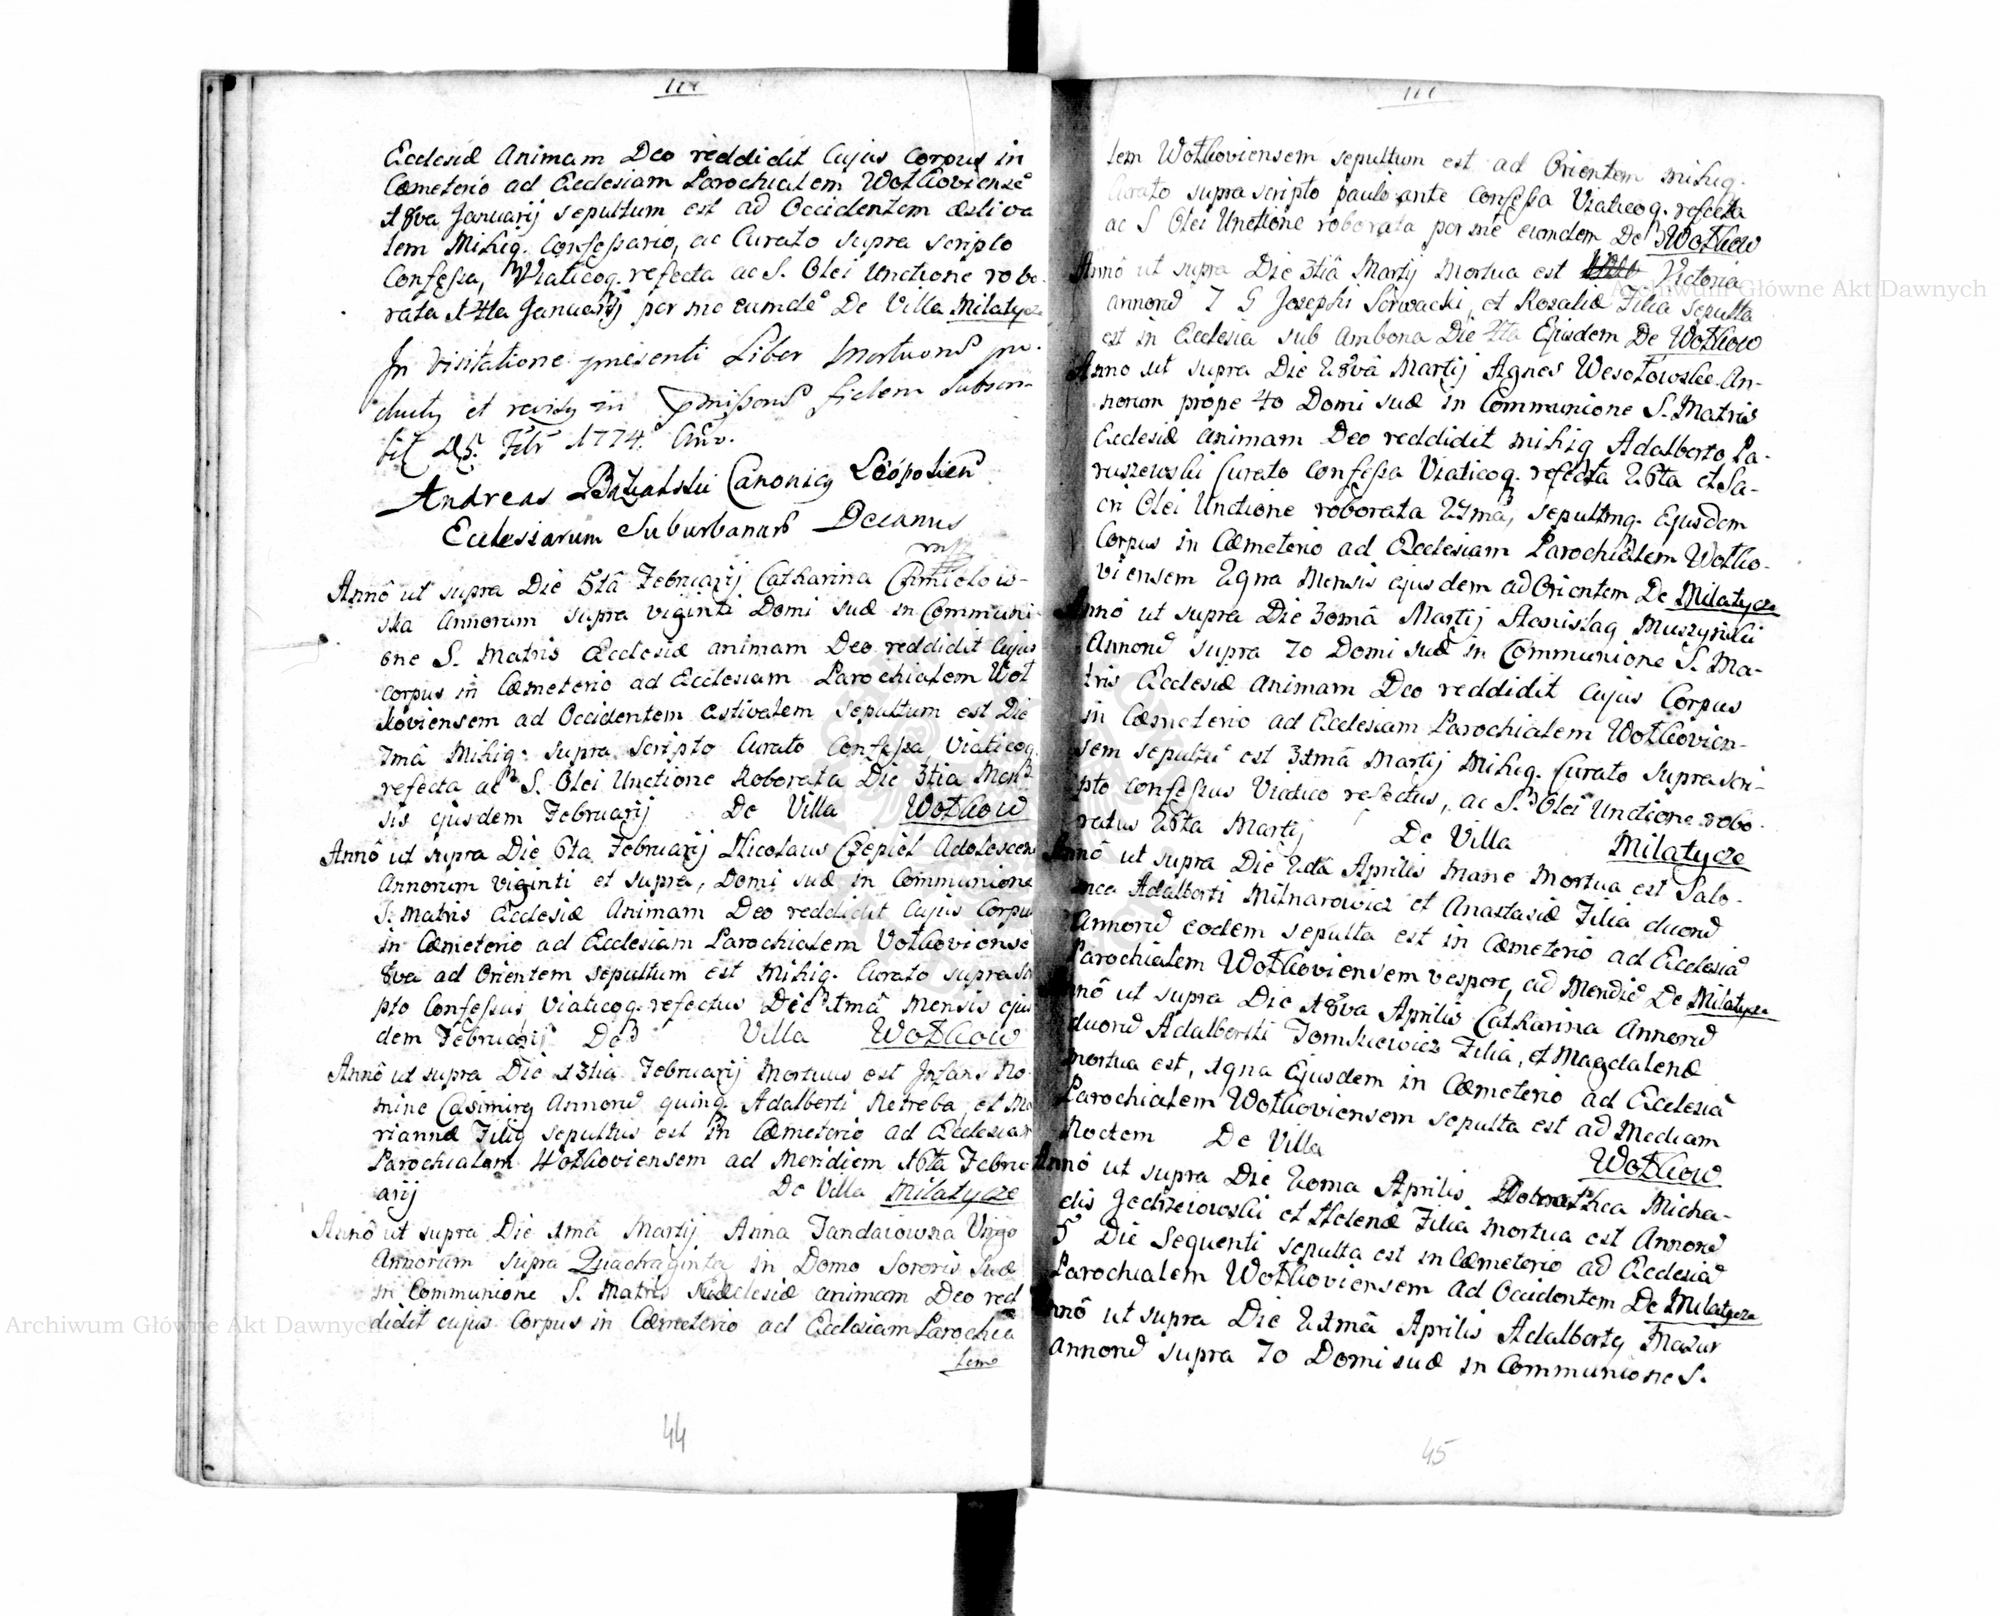 Ecclesiæ Animam Deo reddidit Cujus Corpus in
Cæmeterio ad Ecclesiam Parochialem Wołkoviensē
18va Januarij sepultum est ad Occidentem æstiva
lem Mihiq. Confessario, ac Curato supra scripto
Confessa, Viaticoq. refecta ac S. Olei Unctione robo-
rata 14ta Januarij per me eumdē De Villa Milatycze
In visitatione presenti Liber Mortuorum pro-
ductus et revisus in fidem subscri-
25 Febr 1774
Andreas Canonicus Leopolien
Ecclesiarum Suburbanarum Decanus
mp
Annô ut supra Die 5tâ Februarij Catharina Chmielows-
ska Annorum supra viginti Domi suæ in Communi-
one S. Matris Ecclesiæ animam Deo reddidit Cujus
corpus in Cæmeterio ad Ecclesiam Parochialem Woł
koviensem ad Occidentem æstivalem sepultum est Die
7mâ Mihiq. supra scripto Curato Confessa Viaticoq.
refecta ac S. Olei Unctione Roborata Die 3tia Men-
sis ejusdem Februarij De Villa Wołkow
Annô ut supra Die 6ta Februarij Nicolaus Czepiel Adolescens
Annorum viginti et supra, Domi suæ in Communione
S. Matris Ecclesiæ Animam Deo reddidit Cujus Corpus
in Cæmeterio ad Ecclesiam Parochialem Wołkoviensē
8va ad Orientem sepultum est Mihiq. Curato supra scri
pto Confessus Viaticoq. refectus Die 1mâ Mensis ejus
dem Februarij De Villa Wołkow
Annô ut supra Die 13tia Februarij Mortuus est Infans No-
mine Casimirus Annorum quinq. Adalberti Retreba, et Ma
riannæ Filius sepultus est in Cæmeterio ad Ecclesiam
Parochialem Wołkoviensem ad Meridiem 16ta Febru
arij De Villa Milatycze
Annô ut supra Die 1mâ Martij Anna Jandaiowna Virgo
Annorum supra Quadraginta in Domo Sororis suæ
in Communione S. Matris Ecclesiæ animam Deo red
didit cujus Corpus in Cæmeterio ad Ecclesiam Parochiā
lem
44
111
lem Wołkoviensem sepultum est ad Orientem mihiq.
Curato supra scripto paulo ante Confessa Viaticoq. refecta
ac S Olei Unctione roborata per me eumdem De Wołkow
Annô ut supra Die 3tiâ Martij Mortua est Victoria
annorum 7 G Josephi Serwacki, et Rosaliæ Filia sepulta
est in Ecclesia sub Ambona Die 4ta Ejusdem De Wołkow
Anno ut supra Die 28vâ Martij Agnes Wesołowska An-
norum prope 40 Domi suæ in Communione S. Matris
Ecclesiæ Animam Deo reddidit mihiq Adalberto Pa-
ruszewski Curato confessa Viaticoq. refecta 26ta et Sa-
cri Olei Unctione roborata 27mâ, sepultmq. Ejusdem
Corpus in Cæmeterio ad Ecclesiam Parochialem Wołko-
viensem 29na Mensis ejusdem ad Orientem De Milatycze
Annô ut supra Die 30mâ Martij Stanislaus Muszyński
Annorum supra 70 Domi suæ in Communione S. Ma-
tris Ecclesiæ Animam Deo reddidit Cujus Corpus
in Cæmeterio ad Ecclesiam Parochialem Wołkovien-
sem sepultū est 31mâ Martij Mihiq. Curato supra scri-
pto confessus Viatico refectus, ac S. Olei Unctione robo-
ratus 26ta Martij De Villa Milatycze
Annô ut supra Die 2dâ Aprilis Mane Mortua est Salo-
mea Adalberti Milnarowicz et Anastasiæ Filia duorum
Annorum eodem sepulta est in Cæmeterio ad Ecclesiā
Parochialem Wołkoviensem vespere, ad Meridiē De Milatycze
Annô ut supra Die 18va Aprilis Catharina Annorum
duorum Adalberti Tomkiewicz Filia, et Magdalenæ
Mortua est, 19na Ejusdem in Cæmeterio ad Ecclesiā
Parochialem Wołkoviensem sepulta est ad Mediam
Noctem De Villa Wołkow
Annô ut supra Die 20ma Aprilis Dorothea Micha-
elis Jedrzeiowski et Helenæ Filia mortua est Annorum
5 Die Sequenti sepulta est in Cæmeterio ad Ecclesiā
Parochialem Wołkoviensem ad Occidentem De Milatycze
Annô ut supra Die 21mâ Aprilis Adalbertus Mazur
Annorum supra 70 Domi suæ in Communione S.
45
Archiwum Główne Akt Dawnych
Archiwum Główne Akt Dawnych